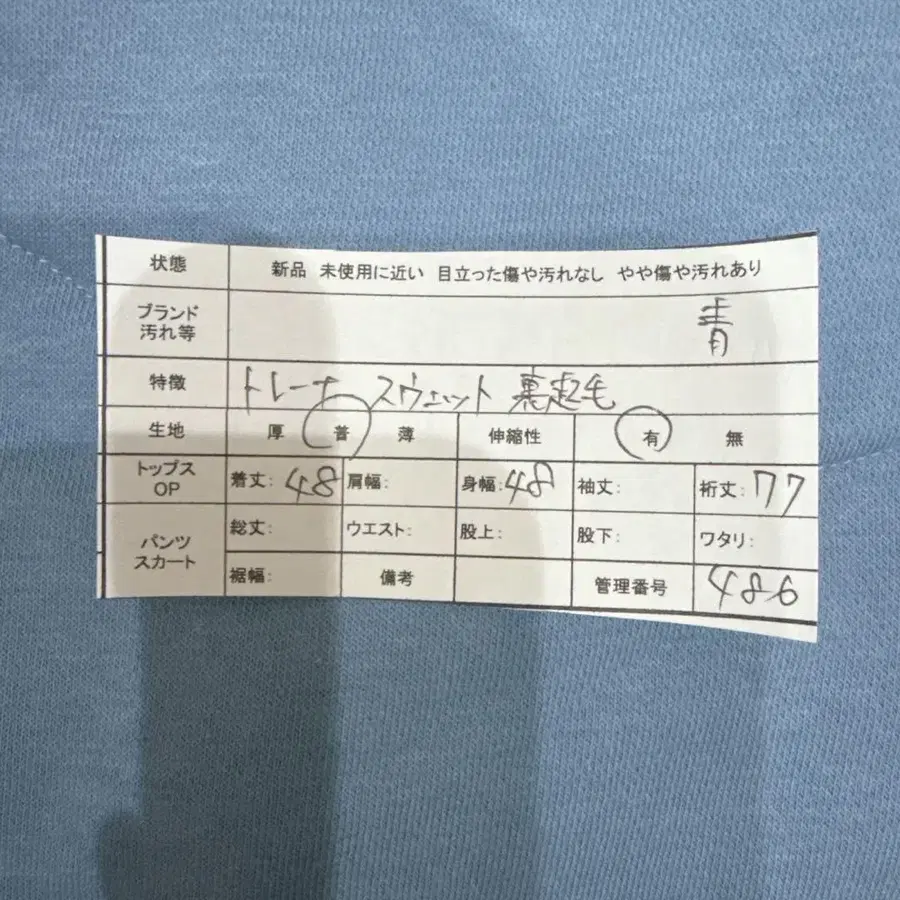 状態 新品 未使用に近い 目立った傷や汚れなし やや傷や汚れあり
ブランド
汚れ等 青
特徴 トレーナー スウェット 裏起毛
生地 厚 普 薄 伸縮性 有 無
トップス
OP 着丈: 48 肩幅: 身幅: 48 袖丈: 裄丈: 77
パンツ
スカート 総丈: ウエスト: 股上: 股下: ワタリ:
裾幅: 備考 管理番号 486